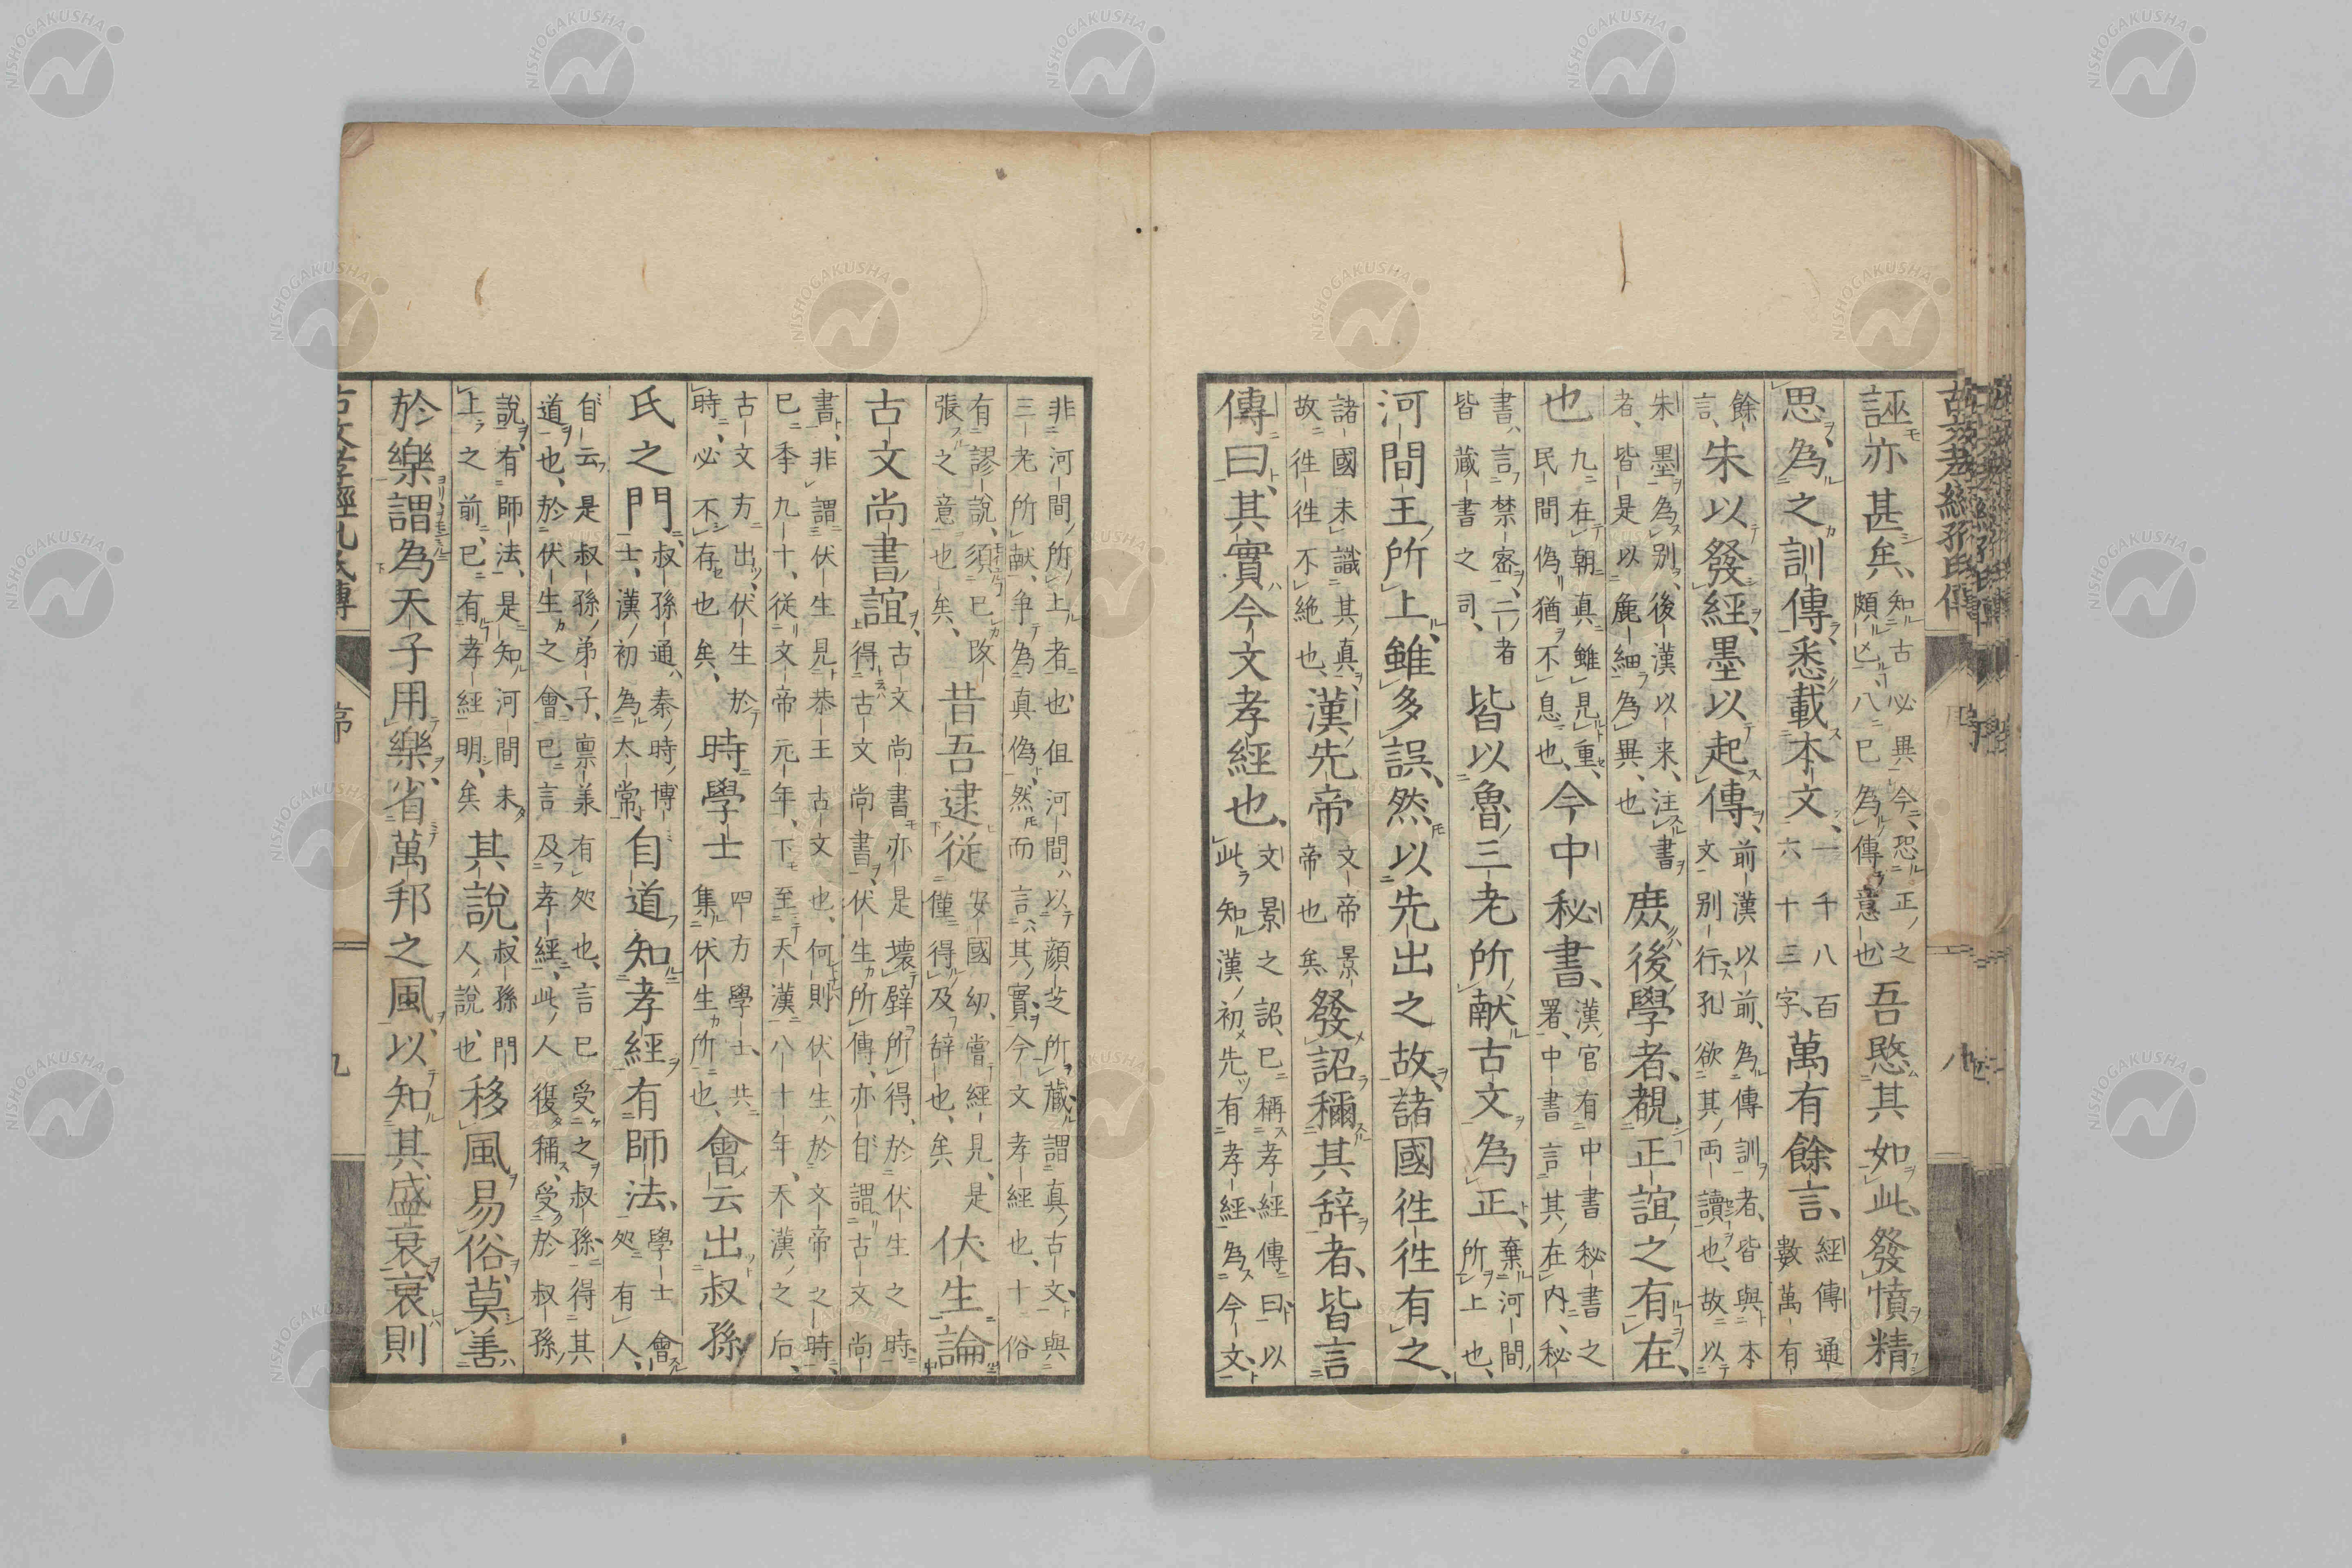 古文孝經孔氏傳　八
誣亦甚矣、知古必異今恐正之頗亾八已為傳意也吾愍其如此、發憤精
思為之訓傳悉載本文、一千八百六十三字、萬有餘言、經傳通數萬有
餘言、朱以發經、墨以起傳、前漢以前、為傳訓者、皆與本文別行、孔欲其両讀也、故以
朱墨為別、後漢以来、注書者、皆是以麁細為異、也庶後學者、覩正誼之有在、
也九在朝真雖見重、民間偽猶不息也、今中秘書、漢官有中書秘書之署、中書言其在内、秘
書、言禁密、二者皆蔵書之司、皆以魯三老所献古文為正、棄河間所上也、
河間王所上、雖多誤、然以先出之故、諸國徃徃有之、
諸國未識其真、故徃徃不絶也、漢先帝文帝景帝也矣發詔稱其辞者、皆言
傳曰、其實今文孝經也、文景之詔、已稱孝經傳曰、以此知漢初先有孝經、為今文、
非河間所上者也伹河間以顔芝所蔵、謂真古文、與三老所献、争為真偽、然而言、其實、今文孝經也、十俗
有謬説、須已改張之意也矣、昔吾逮従安國幼、嘗經見、是僅得及辞也、矣伏生論
古文尚書誼、古文尚書亦是壊壁所得、於伏生之時、得古文尚書、伏生所傳、亦自謂古文尚
書、非謂伏生見恭王古文也、何則伏生、於文帝之時、已季九十、従文帝元年、下至天漢八十年、天漢之后、
古文方出、伏生於時、必不存也矣、時學士四方學士、共集伏生所也、會云出叔孫
氏之門、叔孫通、秦時博士、漢初為太常自道知孝經有師法、學士會処有人、
自云是叔孫弟子、禀義有処也、言已受之叔孫、得其道也、於伏生之會、已言及孝經、此人復稱、受於叔孫
説、有師法、是知河間未上之前、已有孝經明、矣其説、叔孫門人説、也移風易俗、莫善
於樂謂為天子用樂、省萬邦之風、以知其盛衰、衰則
古文孝經孔氏傳　序　九